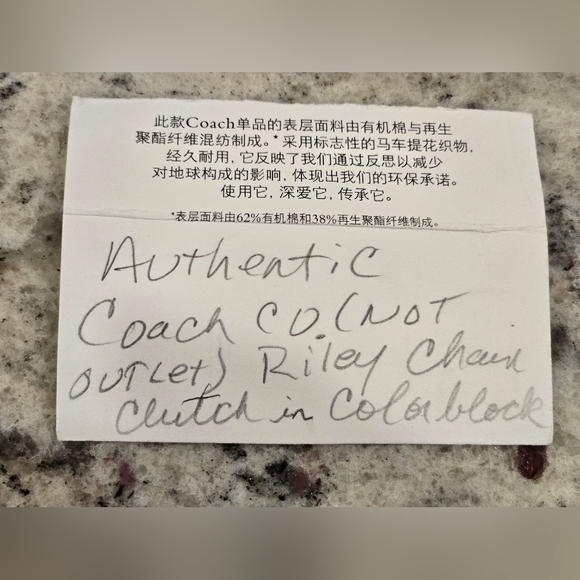 此款Coach单品的表层面料由有机棉与再生
聚酯纤维混纺制成。*采用标志性的马车提花织物，
经久耐用，它反映了我们通过反思以减少
对地球构成的影响，体现出我们的环保承诺。
使用它，深爱它，传承它。
*表层面料由62%有机棉和38%再生聚酯纤维制成。
Authentic
Coach CO. (NOT
OUTLet) Riley Chain
Clutch in Colorblock